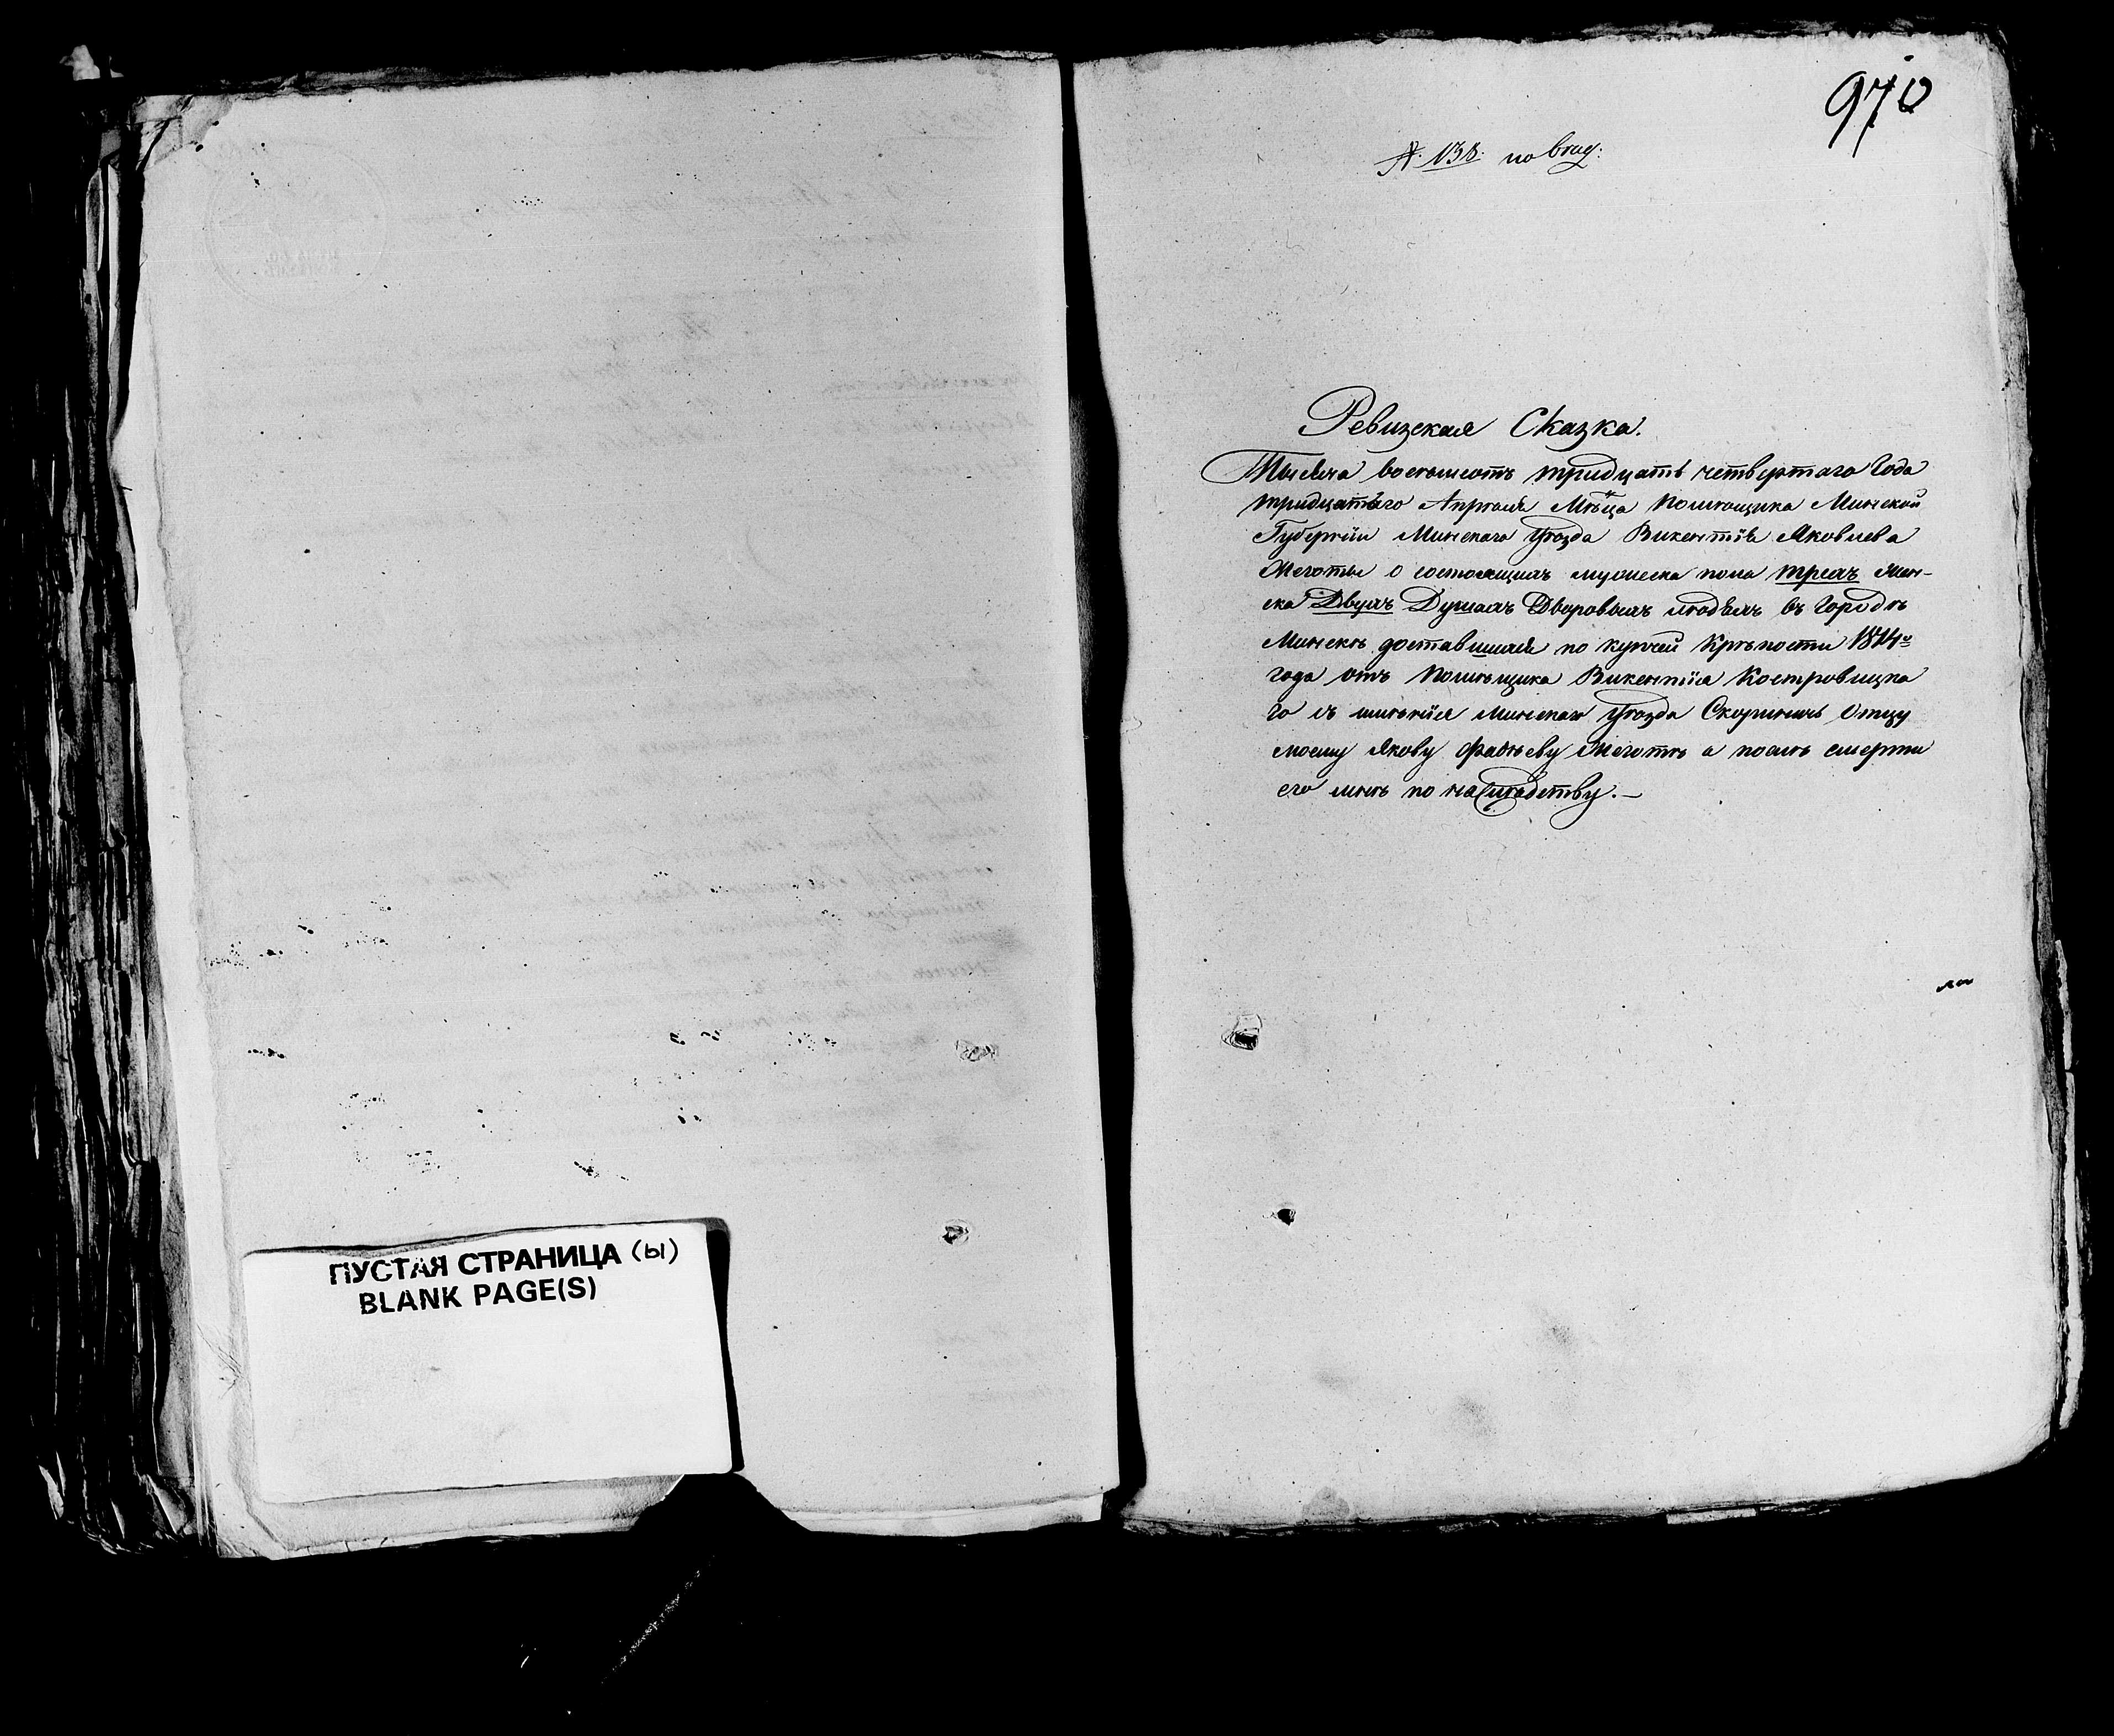 ПУСТАЯ СТРАНИЦА (Ы)
BLANK PAGE(S)
970
№ 138. по
Ревизская Сказка.
Тысяча восемьсотъ тридцать четвертаго Года
тридцатаго Апрѣля Мѣсца Помѣщика Минской
Губерніи Минскаго Уѣзда Викентія Яковлева
Жеготы о состоящихъ мужеска пола трехъ жен-
ска Двухъ Душахъ Дворовыхъ людяхъ въ Городѣ
Минскѣ доставшихся по купчей Крѣпости 1814го
года отъ Помѣщика Викентія Костровицка
го съ имѣнія Минскаго Уѣзда Скориничъ Отцу
моему Якову Фадѣеву Жеготѣ а послѣ смерти
его мнѣ по наслѣдству. —